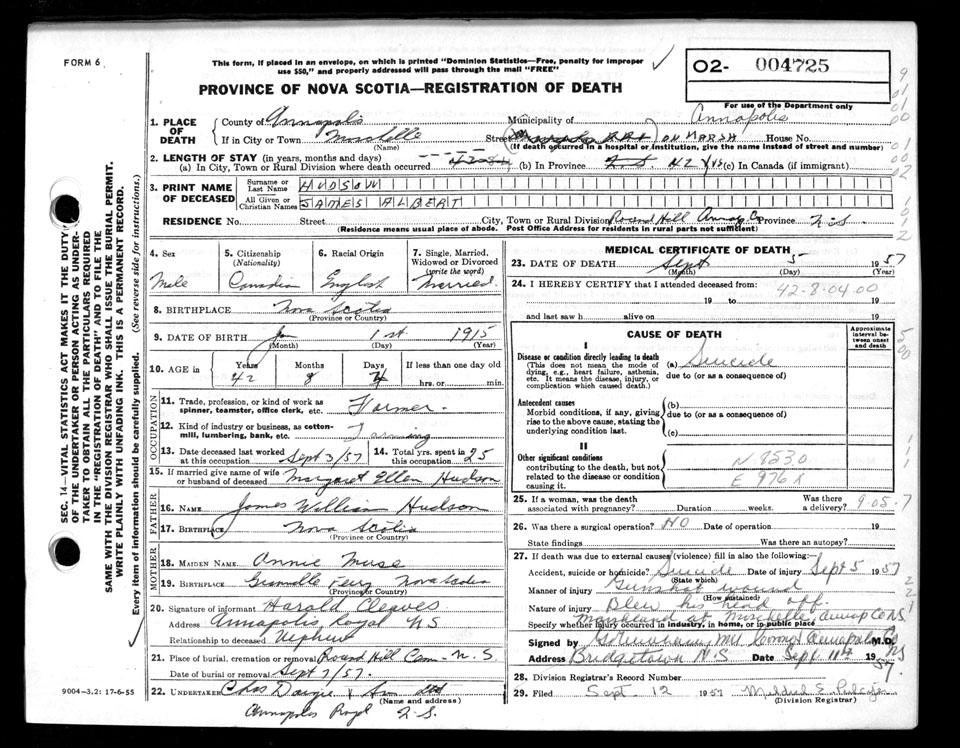 FORM 6
This form, if placed in an envelope, on which is printed "Dominion Statistics—Free, penalty for improper
use $50," and properly addressed will pass through the mail "FREE"
O2- 004725
For use of the Department only
PROVINCE OF NOVA SCOTIA—REGISTRATION OF DEATH
SEC. 14—VITAL STATISTICS ACT MAKES IT THE DUTY
OF THE UNDERTAKER OR PERSON ACTING AS UNDER-
TAKER TO OBTAIN ALL THE PARTICULARS REQUIRED
IN THE "REGISTRATION OF DEATH" AND TO FILE THE
SAME WITH THE DIVISION REGISTRAR WHO SHALL ISSUE THE BURIAL PERMIT.
WRITE PLAINLY WITH UNFADING INK. THIS IS A PERMANENT RECORD.
Every item of information should be carefully supplied. (See reverse side for instructions.)
1. PLACE OF DEATH
County of Annapolis Municipality of Annapolis
If in City or Town Moschelle Street ON MARSH House No.
(Name) (If death occurred in a hospital or institution, give the name instead of street and number)
2. LENGTH OF STAY (in years, months and days)
(a) In City, Town or Rural Division where death occurred (b) In Province 42 yrs (c) In Canada (if immigrant)
3. PRINT NAME OF DECEASED
Surname or Last Name HUDSON
All Given or Christian Names JAMES ALBERT
RESIDENCE No. Street City, Town or Rural Division Round Hill Annap Co Province N.S.
(Residence means usual place of abode. Post Office Address for residents in rural parts not sufficient)
4. Sex Male
5. Citizenship (Nationality) Canadian
6. Racial Origin English
7. Single, Married, Widowed or Divorced (write the word) Married
8. BIRTHPLACE Nova Scotia
(Province or Country)
9. DATE OF BIRTH Jan 1st 1915
(Month) (Day) (Year)
10. AGE in Years 42 Months 8 Days 4 If less than one day old hrs. or min.
OCCUPATION
11. Trade, profession, or kind of work as spinner, teamster, office clerk, etc. Farmer.
12. Kind of industry or business, as cotton-mill, lumbering, bank, etc. Farming
13. Date deceased last worked at this occupation Sept 3/57 14. Total yrs. spent in this occupation 25
15. If married give name of wife or husband of deceased Margaret Ellen Hudson
FATHER
16. NAME James William Hudson
17. BIRTHPLACE Nova Scotia
(Province or Country)
MOTHER
18. MAIDEN NAME Annie Muse
19. BIRTHPLACE Granville Ferry Nova Scotia
(Province or Country)
20. Signature of informant Harold Cleaves
Address Annapolis Royal NS
Relationship to deceased Nephew
21. Place of burial, cremation or removal Round Hill Cem- N.S.
Date of burial or removal Sept 7/57.
22. UNDERTAKER Chas Dargie & Son Ltd
(Name and address)
Annapolis Royal N.S.
9004—3,2: 17-6-55
MEDICAL CERTIFICATE OF DEATH
23. DATE OF DEATH Sept 5 1957
(Month) (Day) (Year)
24. I HEREBY CERTIFY that I attended deceased from:
42-8-04.00
19 to 19
and last saw h alive on 19
CAUSE OF DEATH
Approximate interval between onset and death
I
Disease or condition directly leading to death (a) Suicide
(This does not mean the mode of dying, e.g., heart failure, asthenia, etc. It means the disease, injury, or complication which caused death.)
due to (or as a consequence of)
Antecedent causes
Morbid conditions, if any, giving rise to the above cause, stating the underlying condition last.
(b)
due to (or as a consequence of)
(c)
II
Other significant conditions
contributing to the death, but not related to the disease or condition causing it.
N 8530
E 976X
25. If a woman, was the death associated with pregnancy? Duration weeks. Was there a delivery?
9-05-7
26. Was there a surgical operation? NO Date of operation 19
State findings Was there an autopsy?
27. If death was due to external causes (violence) fill in also the following:—
Accident, suicide or homicide? Suicide Date of injury Sept 5 1957
(State which)
Manner of injury Gunshot wound
(How sustained)
Nature of injury Blew his head off.
Marshland at Moschelle Annap Co NS
Specify whether injury occurred in industry, in home, or in public place
Signed by M.D.
Address Bridgetown N.S. Date Sept 11th 1957.
28. Division Registrar's Record Number
29. Filed Sept. 12 1957 Mildred E.
(Division Registrar)